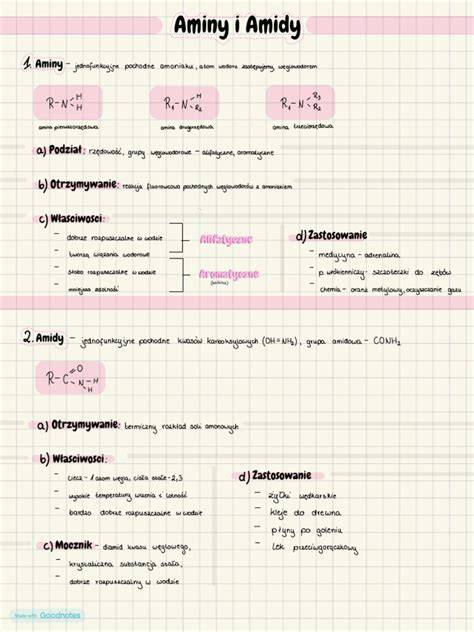 Aminy i Amidy
1. Aminy - jednofunkcyjne pochodne amoniaku, atom wodoru zastępujemy węglowodorem
R-N H H
R₁-N H R₂
R₁-N R₃ R₂
amina pierwszorzędowa
amina drugorzędowa
amina trzeciorzędowa
a) Podział: rzędowość, grupy węglowodorowe - alifatyczne, aromatyczne
b) Otrzymywanie: reakcja fluorowco pochodnych węglowodorów z amoniakiem
c) Właściwości:
- dobrze rozpuszczalne w wodzie
- tworzą wiązania wodorowe
- słabo rozpuszczalne w wodzie
- mniejsza zasadowość
Alifatyczne
Aromatyczne
d) Zastosowanie
- medycyna - adrenalina
- p. włókienniczy - szczoteczki do zębów
- chemia - oranż metylowy, oczyszczanie gazu
2. Amidy - jednofunkcyjne pochodne kwasów karboksylowych (OH=NH₂), grupa amidowa - CONH₂
R-C O N-H H
a) Otrzymywanie: termiczny rozkład soli amonowych
b) Właściwości:
- ciecz - 1 atom węgla, ciała stałe - 2,3
- wysokie temperatury wrzenia i lotność
- bardzo dobrze rozpuszczalne w wodzie
c) Mocznik - diamid kwasu węglowego,
- krystaliczna substancja stała,
- dobrze rozpuszczalny w wodzie
d) Zastosowanie
- żyłki wędkarskie
- kleje do drewna
- płyny po goleniu
- lek przeciwgorączkowy
Made with Goodnotes